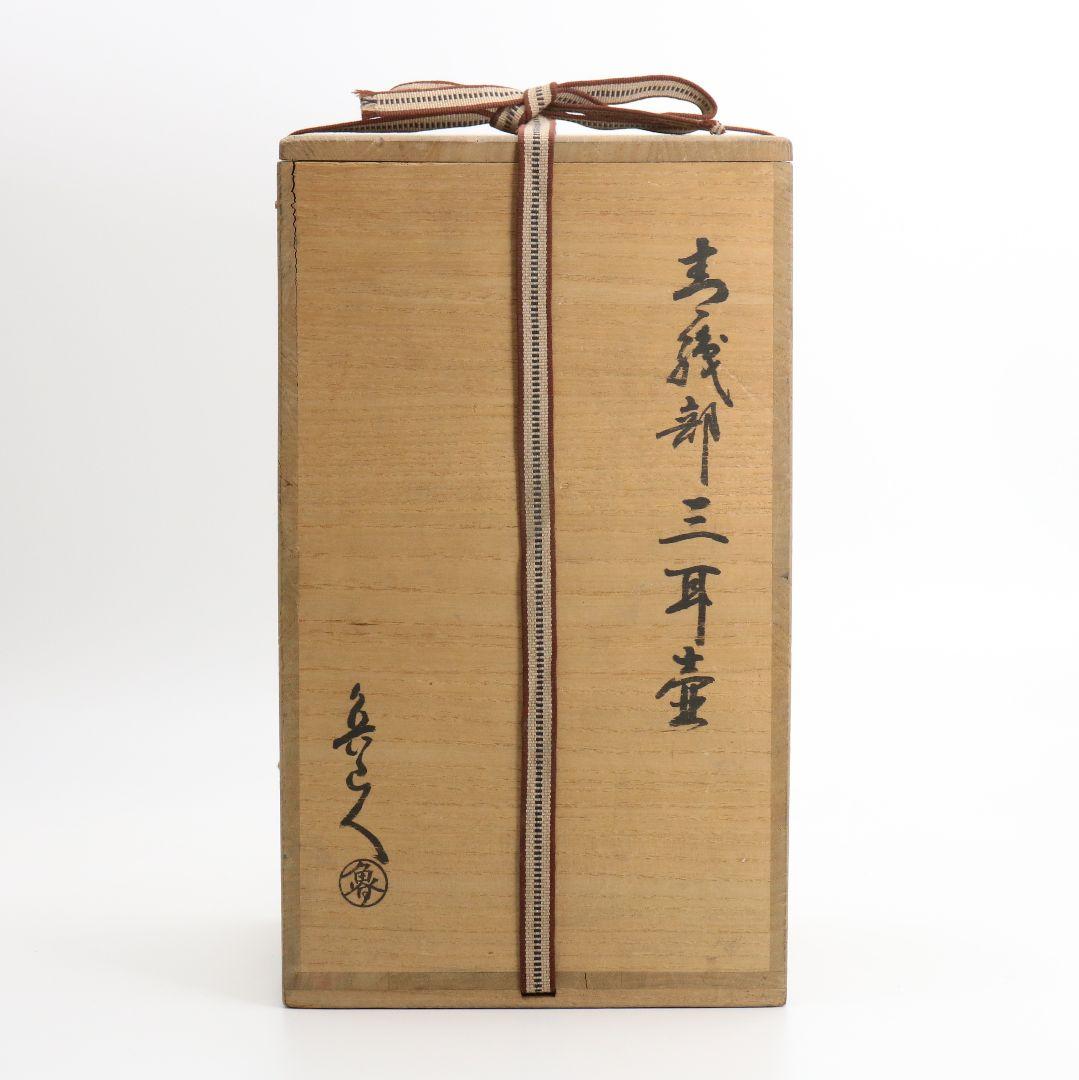 青織部三耳壷
魯山人
魯